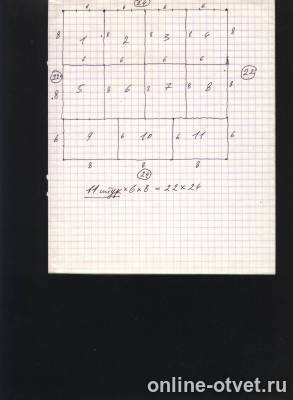 24
6 6 6 6
8 1 8 2 8 3 8 4 8
6 6 6 6
22 22
8 5 8 6 8 7 8 8 8
6 9 6 10 6 11 6
8 8 8
24
11 штук × 6 × 8 = 22 × 24
online-otvet.ru